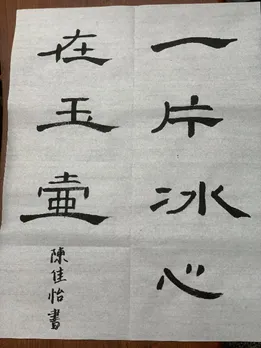 一片冰心
在玉壷
陳佳怡書